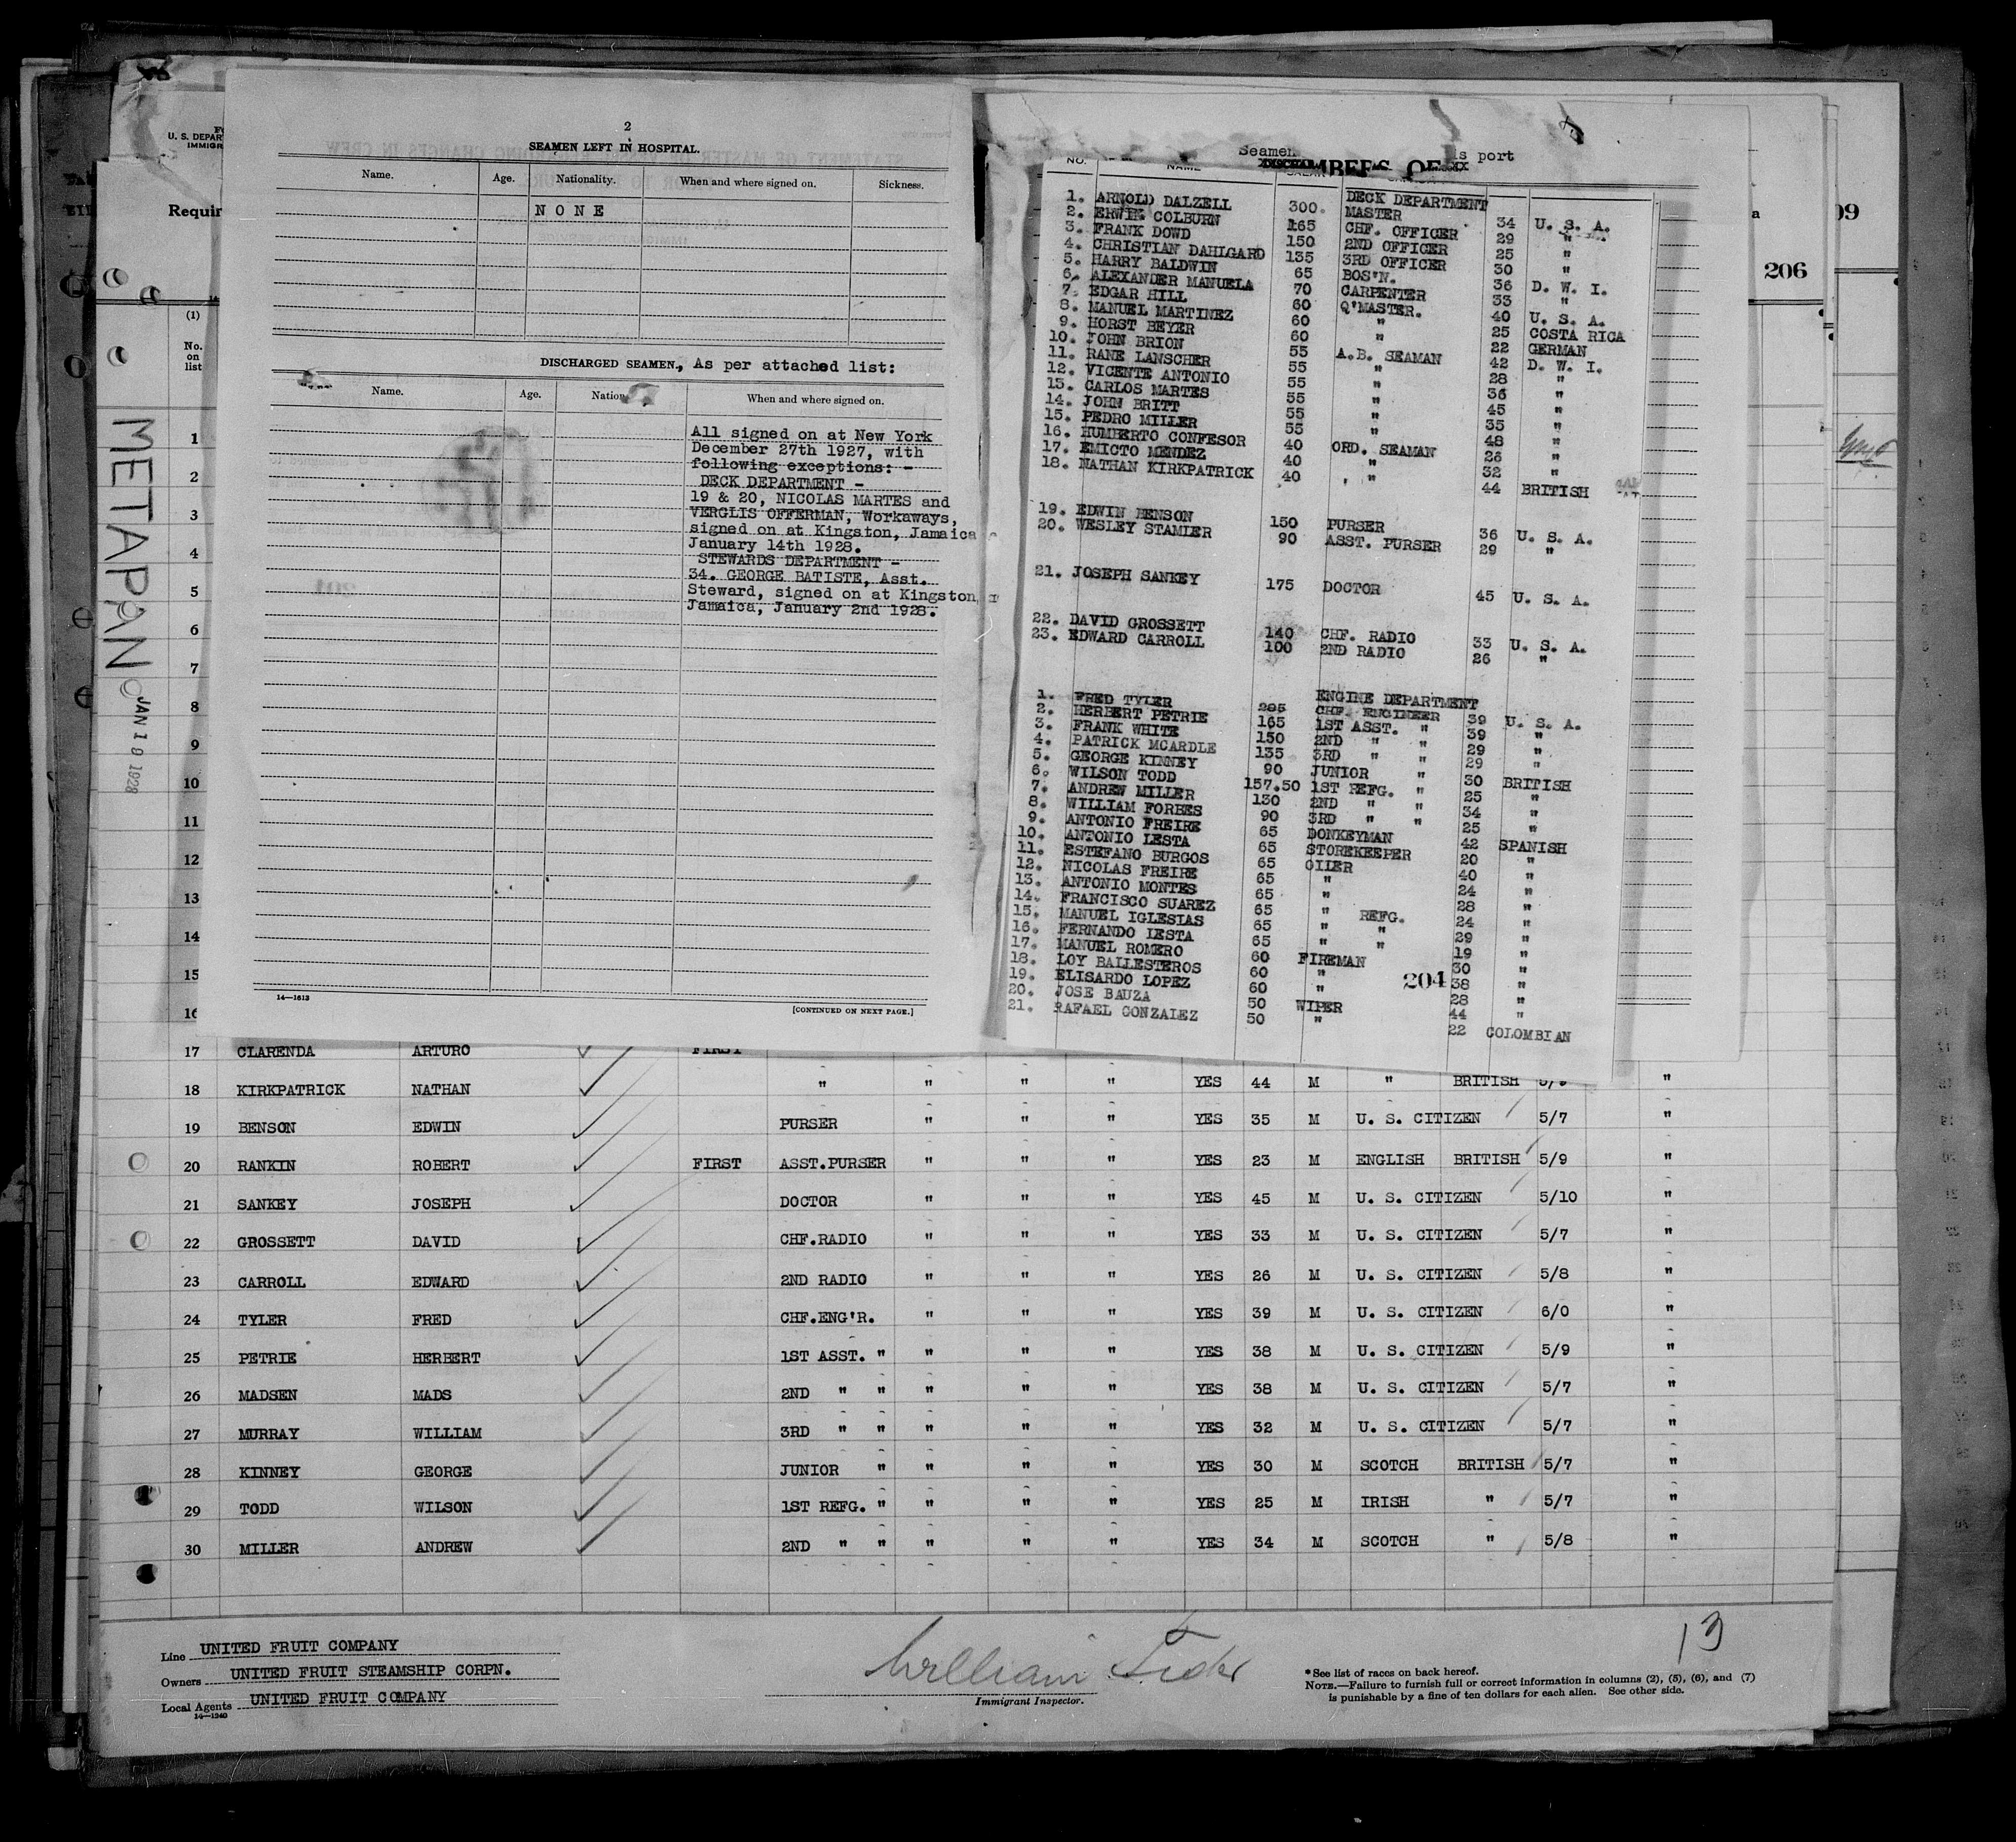 2
SEAMEN LEFT IN HOSPITAL.
Name. Age. Nationality. When and where signed on. Sickness.
NONE
DISCHARGED SEAMEN., As per attached list:
Name. Age. Nation When and where signed on.
All signed on at New York
December 27th 1927, with
following exceptions: -
DECK DEPARTMENT -
19 & 20, NICOLAS MARTES and
VERGLIS OFFERMAN, Workaways,
signed on at Kingston, Jamaica
January 14th 1928.
STEWARDS DEPARTMENT -
34. GEORGE BATISTE, Asst.
Steward, signed on at Kingston,
Jamaica, January 2nd 1928.
14—1613
[CONTINUED ON NEXT PAGE.]
Seamen is port
NO. NAME
DECK DEPARTMENT
1. ARNOLD DALZELL 300. MASTER 34 U. S. A.
2. ERWIN COLBURN 165 CHF. OFFICER 29 "
3. FRANK DOWD 150 2ND OFFICER 25 "
4. CHRISTIAN DAHLGARD 135 3RD OFFICER 30 "
5. HARRY BALDWIN 65 BOS'N. 36 D. W. I.
6. ALEXANDER MANUELA 70 CARPENTER 33 "
7. EDGAR HILL 60 Q'MASTER. 40 U. S. A.
8. MANUEL MARTINEZ 60 " 25 COSTA RICA
9. HORST BEYER 60 " 22 GERMAN
10. JOHN BRION 55 A.B. SEAMAN 42 D. W. I.
11. RANE LANSCHER 55 " 28 "
12. VICENTE ANTONIO 55 " 36 "
13. CARLOS MARTES 55 " 45 "
14. JOHN BRITT 55 " 35 "
15. PEDRO MILLER 55 " 48 "
16. HUMBERTO CONFESOR 40 ORD. SEAMAN 26 "
17. EMICTO MENDEZ 40 " 32 "
18. NATHAN KIRKPATRICK 40 " 44 BRITISH
19. EDWIN BENSON 150 PURSER 36 U. S. A.
20. WESLEY STAMIER 90 ASST. PURSER 29 "
21. JOSEPH SANKEY 175 DOCTOR 45 U. S. A.
22. DAVID GROSSETT 140 CHF. RADIO 33 U. S. A.
23. EDWARD CARROLL 100 2ND RADIO 26 "
ENGINE DEPARTMENT
1. FRED TYLER 285 CHF. ENGINEER 39 U. S. A.
2. HERBERT PETRIE 165 1ST ASST. " 39 "
3. FRANK WHITE 150 2ND " " 29 "
4. PATRICK MCARDLE 135 3RD " " 29 "
5. GEORGE KINNEY 90 JUNIOR " 30 BRITISH
6. WILSON TODD 157.50 1ST REFG. " 25 "
7. ANDREW MILLER 130 2ND " " 34 "
8. WILLIAM FORBES 90 3RD " " 25 "
9. ANTONIO FREIRE 65 DONKEYMAN 42 SPANISH
10. ANTONIO LESTA 65 STOREKEEPER 20 "
11. ESTEFANO BURGOS 65 OILER 40 "
12. NICOLAS FREIRE 65 " 24 "
13. ANTONIO MONTES 65 " 28 "
14. FRANCISCO SUAREZ 65 " REFG. 24 "
15. MANUEL IGLESIAS 65 " " 29 "
16. FERNANDO LESTA 65 " " 19 "
17. MANUEL ROMERO 60 FIREMAN 30 "
18. LOY BALLESTEROS 60 " 38 "
19. ELISARDO LOPEZ 60 " 28 "
20. JOSE BAUZA 50 WIPER 44 "
21. RAFAEL GONZALEZ 50 " 22 COLOMBIAN
204
206
09
U. S. DEPAR
IMMIGR
Requir
(1)
No.
on
list
METAPAN
JAN 19 1928
1
2
3
4
5
6
7
8
9
10
11
12
13
14
15
16
17 CLARENDA ARTURO FIRST
18 KIRKPATRICK NATHAN " " " " YES 44 M " BRITISH 5/9 "
19 BENSON EDWIN PURSER " " " YES 35 M U. S. CITIZEN 5/7 "
20 RANKIN ROBERT FIRST ASST.PURSER " " " YES 23 M ENGLISH BRITISH 5/9 "
21 SANKEY JOSEPH DOCTOR " " " YES 45 M U. S. CITIZEN 5/10 "
22 GROSSETT DAVID CHF.RADIO " " " YES 33 M U. S. CITIZEN 5/7 "
23 CARROLL EDWARD 2ND RADIO " " " YES 26 M U. S. CITIZEN 5/8 "
24 TYLER FRED CHF.ENG'R. " " " YES 39 M U. S. CITIZEN 6/0 "
25 PETRIE HERBERT 1ST ASST. " " " " YES 38 M U. S. CITIZEN 5/9 "
26 MADSEN MADS 2ND " " " " " YES 38 M U. S. CITIZEN 5/7 "
27 MURRAY WILLIAM 3RD " " " " " YES 32 M U. S. CITIZEN 5/7 "
28 KINNEY GEORGE JUNIOR " " " " YES 30 M SCOTCH BRITISH 5/7 "
29 TODD WILSON 1ST REFG. " " " " YES 25 M IRISH " 5/7 "
30 MILLER ANDREW 2ND " " " " " YES 34 M SCOTCH " 5/8 "
Line UNITED FRUIT COMPANY
Owners UNITED FRUIT STEAMSHIP CORPN.
Local Agents UNITED FRUIT COMPANY
14—1240
William
Immigrant Inspector.
13
*See list of races on back hereof.
NOTE.—Failure to furnish full or correct information in columns (2), (5), (6), and (7)
is punishable by a fine of ten dollars for each alien. See other side.